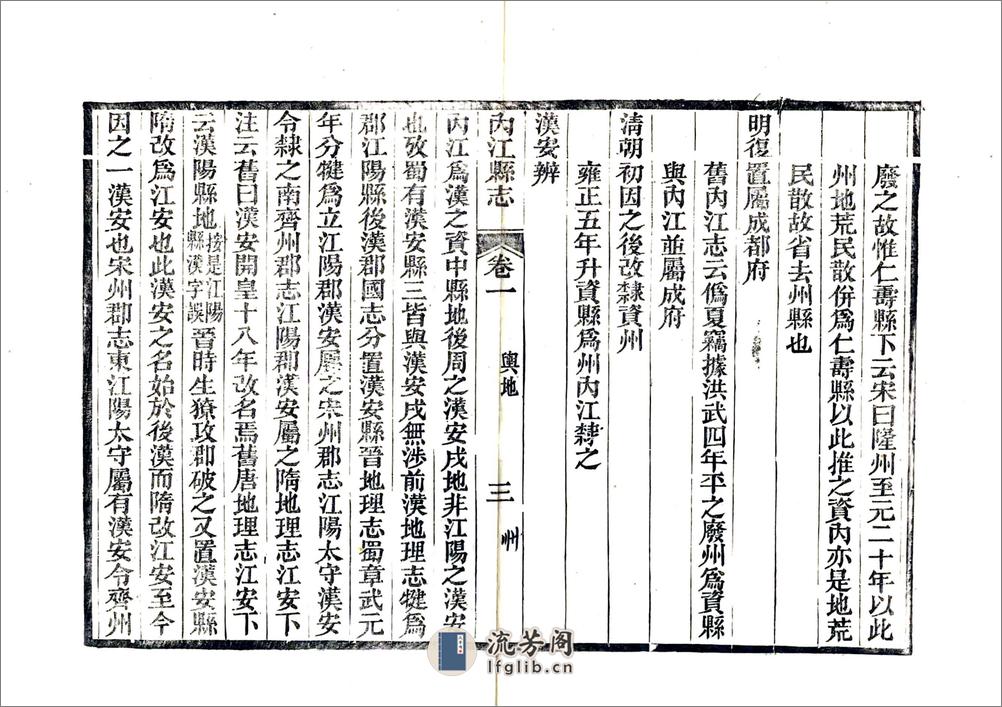 廢之故惟仁壽縣下云宋曰隆州至元二十年以此
州地荒民散併爲仁壽縣以此推之資內亦是地荒
民散故省去州縣也
明復置屬成都府
舊內江志云僞夏竊據洪武四年平之廢州爲資縣
與內江並屬成府
清朝初因之後改隸資州
雍正五年升資縣爲州內江隸之
漢安辨
內江縣志
卷一
輿地
三
州
內江爲漢之資中縣地後周之漢安戌地非江陽之漢安
也攷蜀有漢安縣三皆與漢安戌無涉前漢地理志犍爲
郡江陽縣後漢郡國志分置漢安縣晉地理志蜀章武元
年分犍爲立江陽郡漢安屬之宋州郡志江陽太守漢安
令隸之南齊州郡志江陽郡漢安屬之隋地理志江安下
注云舊曰漢安開皇十八年改名焉舊唐地理志江安下
云漢陽縣地按是江陽縣漢字誤晉時生獠攻郡破之又置漢安縣
隋改爲江安也此漢安之名始於後漢而隋改江安至今
因之一漢安也宋州郡志東江陽太守屬有漢安令齊州
流芳阁
lfglib.cn